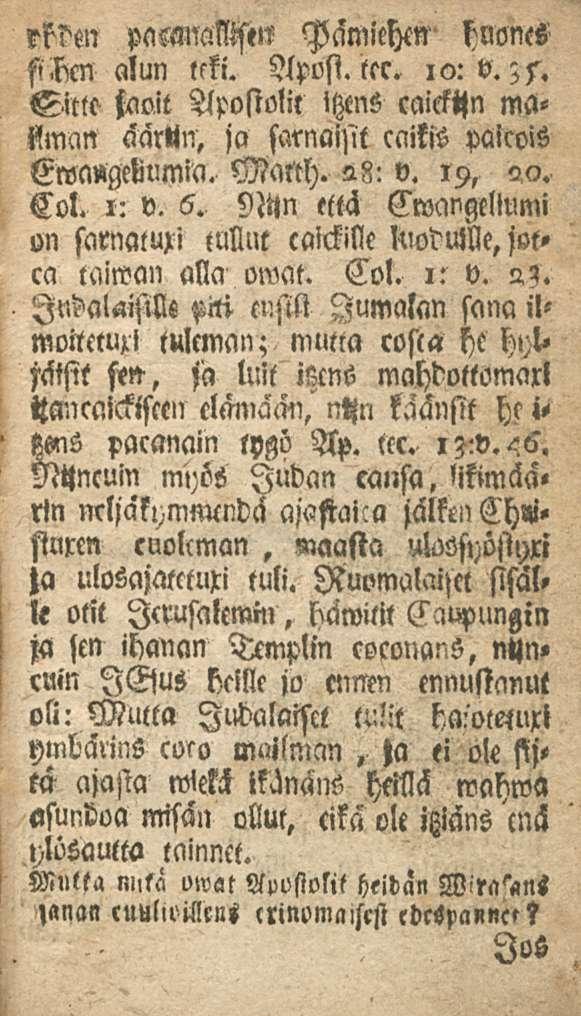 yhden pacanallisen Pämiehen huones
sihen alun teki. Apost. tec. 10: v. 35.
Sitte saoit Apostolit itzens caickijn ma-
ilman äärijn, ja sarnaisit caikis paicois
Ewangeliumia. Matth. 28: v. 19, 20.
Col. 1: v. 6. Nijn että Ewangeliumi
on sarnatuxi tullut caickille luoduille, jot-
ca taiwan alla owat. Col. 1: v. 23.
Judalaisille piti ensist Jumalan sana il-
moitetuxi tuleman; mutta costa he hyl-
jäisit sen, ja luit itzens mahdottomaxi
ijancaickiseen elämään, nijn käänsit he i-
tzens pacanain tygö Ap. tec. 13:v.46.
Nijncuin myös Judan cansa, likimää-
rin neljäkymmendä ajastaica jälken Chri-
stuxen cuoleman, maasta ulossyöstyxi
ja ulosajatetuxi tuli. Ruomalaiset sisäl-
le otit Jerusalemin, häwitit Caupungin
ja sen ihanan Templin coconans, nijn-
cuin JEsus heille jo ennen ennustanut
oli: Mutta Judalaiset tulit hajotetuxi
ymbärins coco mailman, ja ei ole sij-
tä ajasta wielä ikänäns heillä wahwa
asundoa misän ollut, eikä ole itziäns enä
ylösautta tainnet.
Mutta mitä owat Apostolit heidän Wirasans
sanan cuulioillens erinomaisest edespannet?
Jos